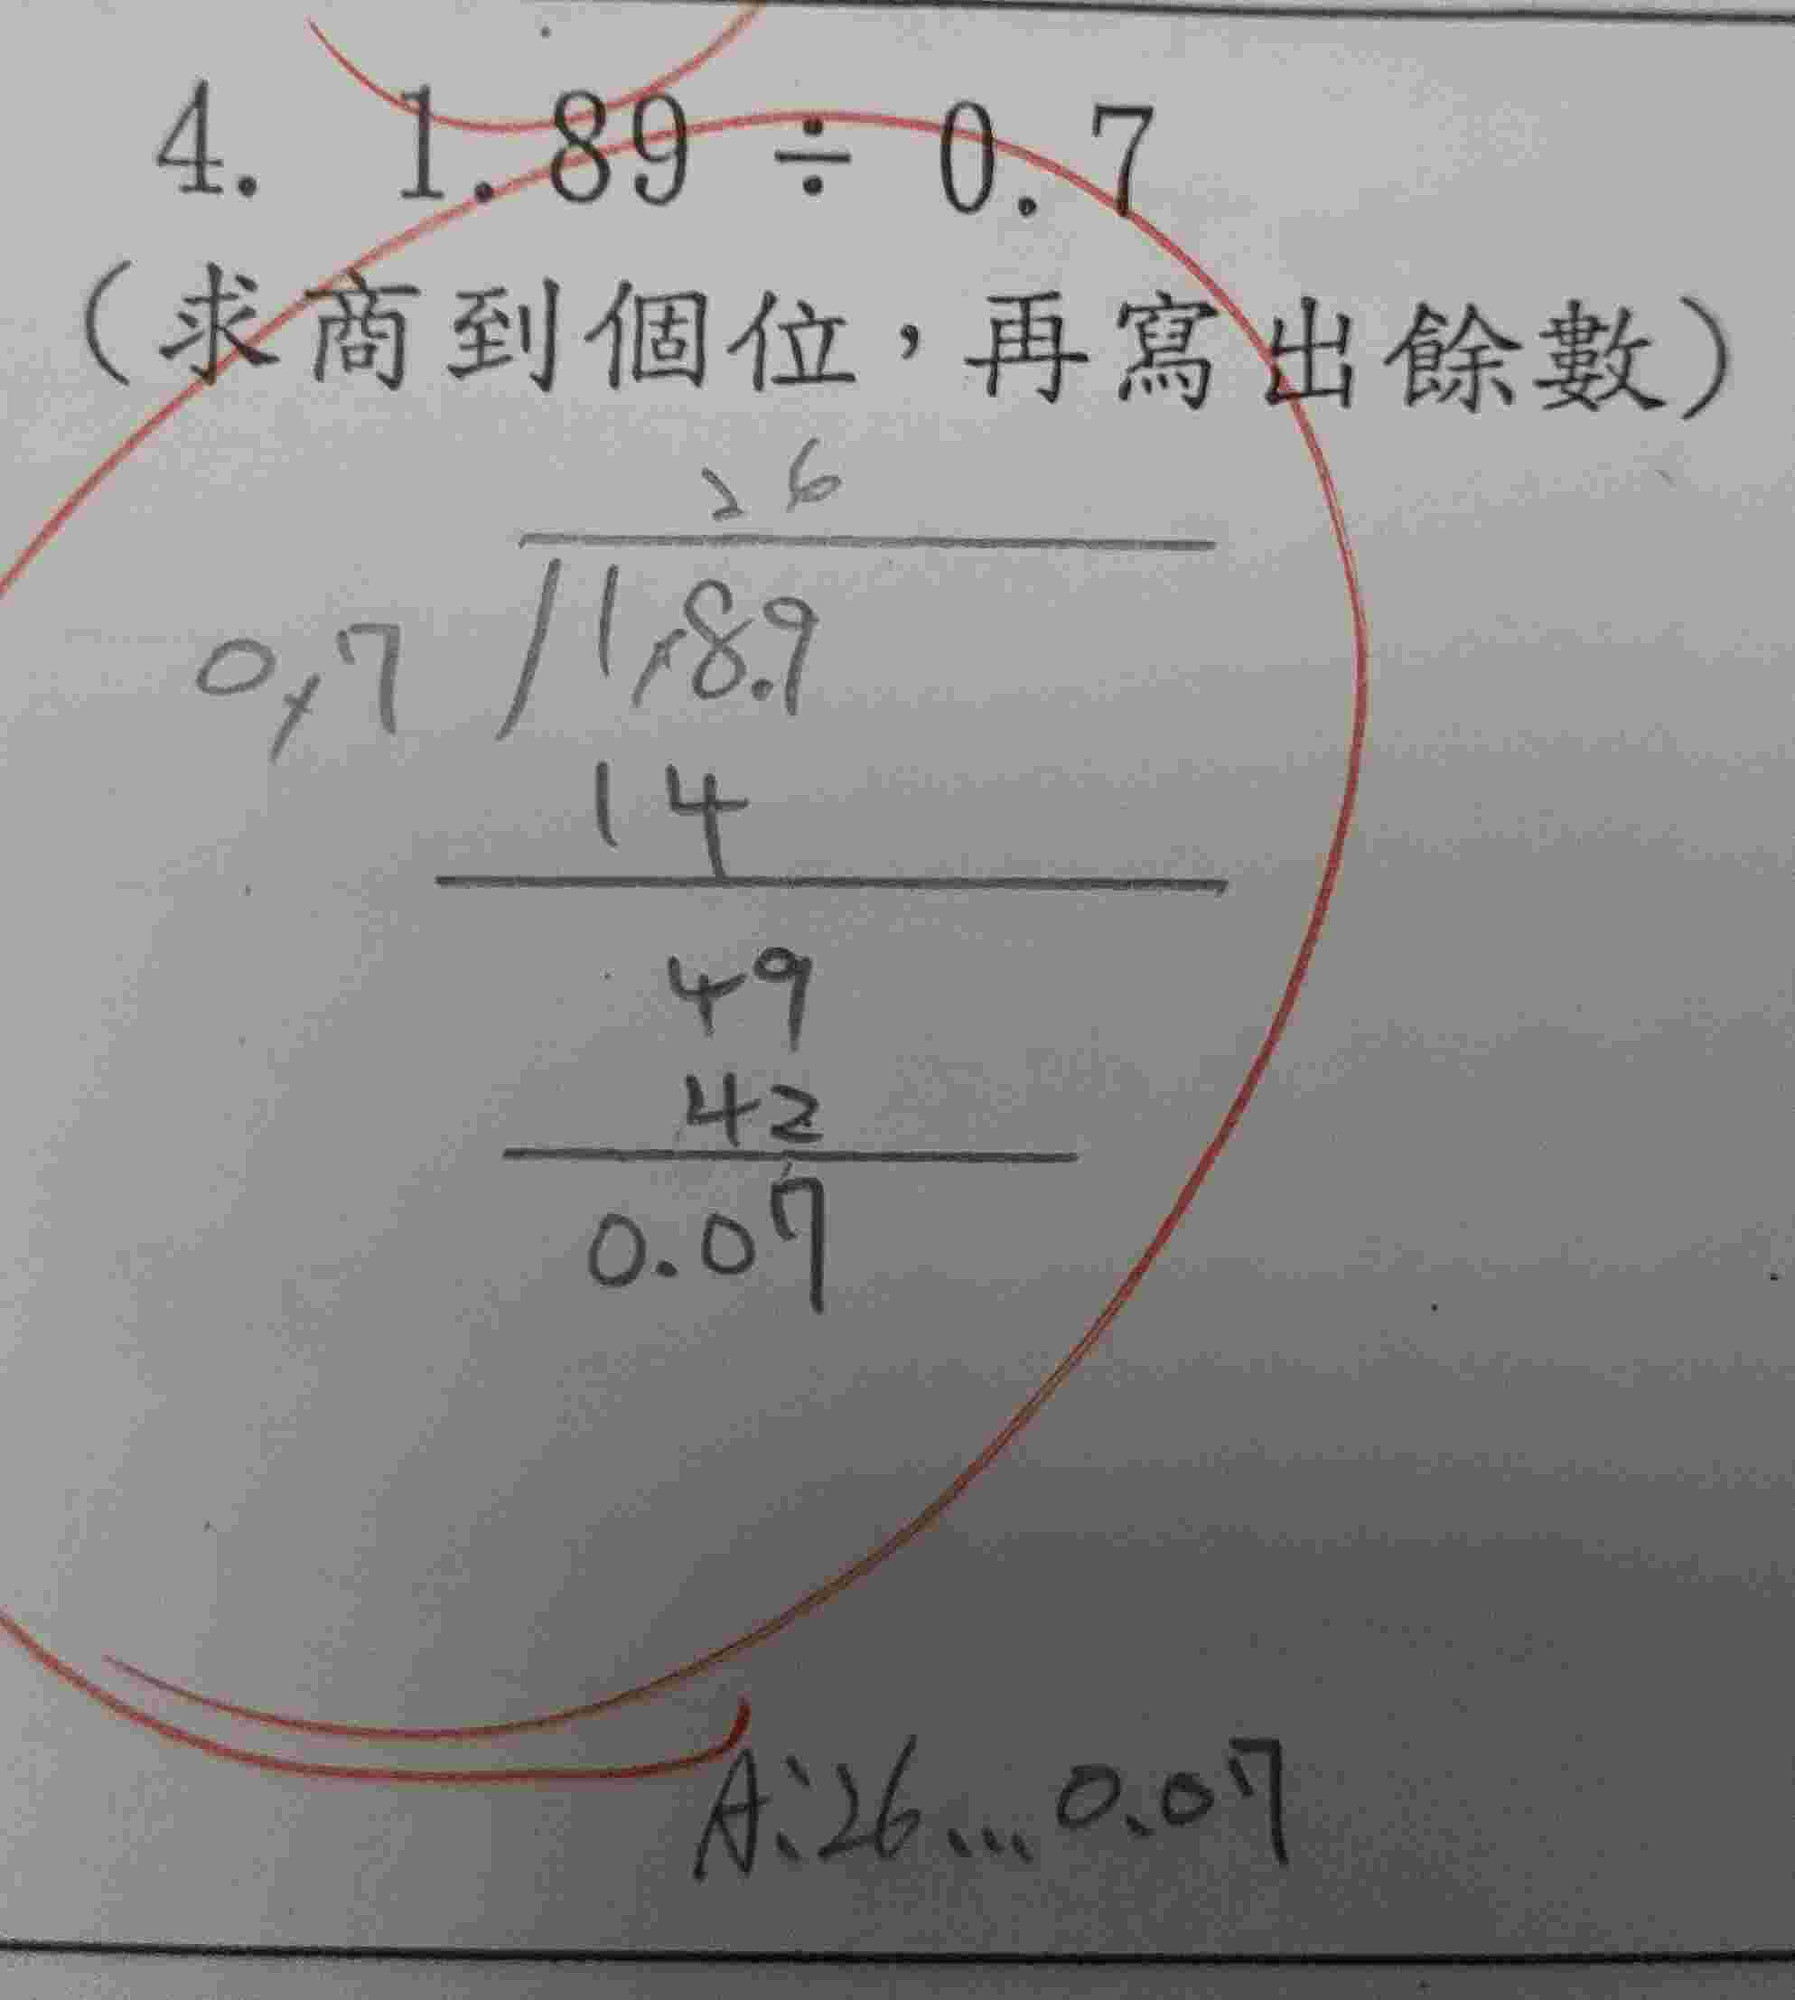 4. 1.89 ÷ 0.7
(求商到個位，再寫出餘數)
26
0.7 1.8.9
14
49
42
0.07
A:26...0.07